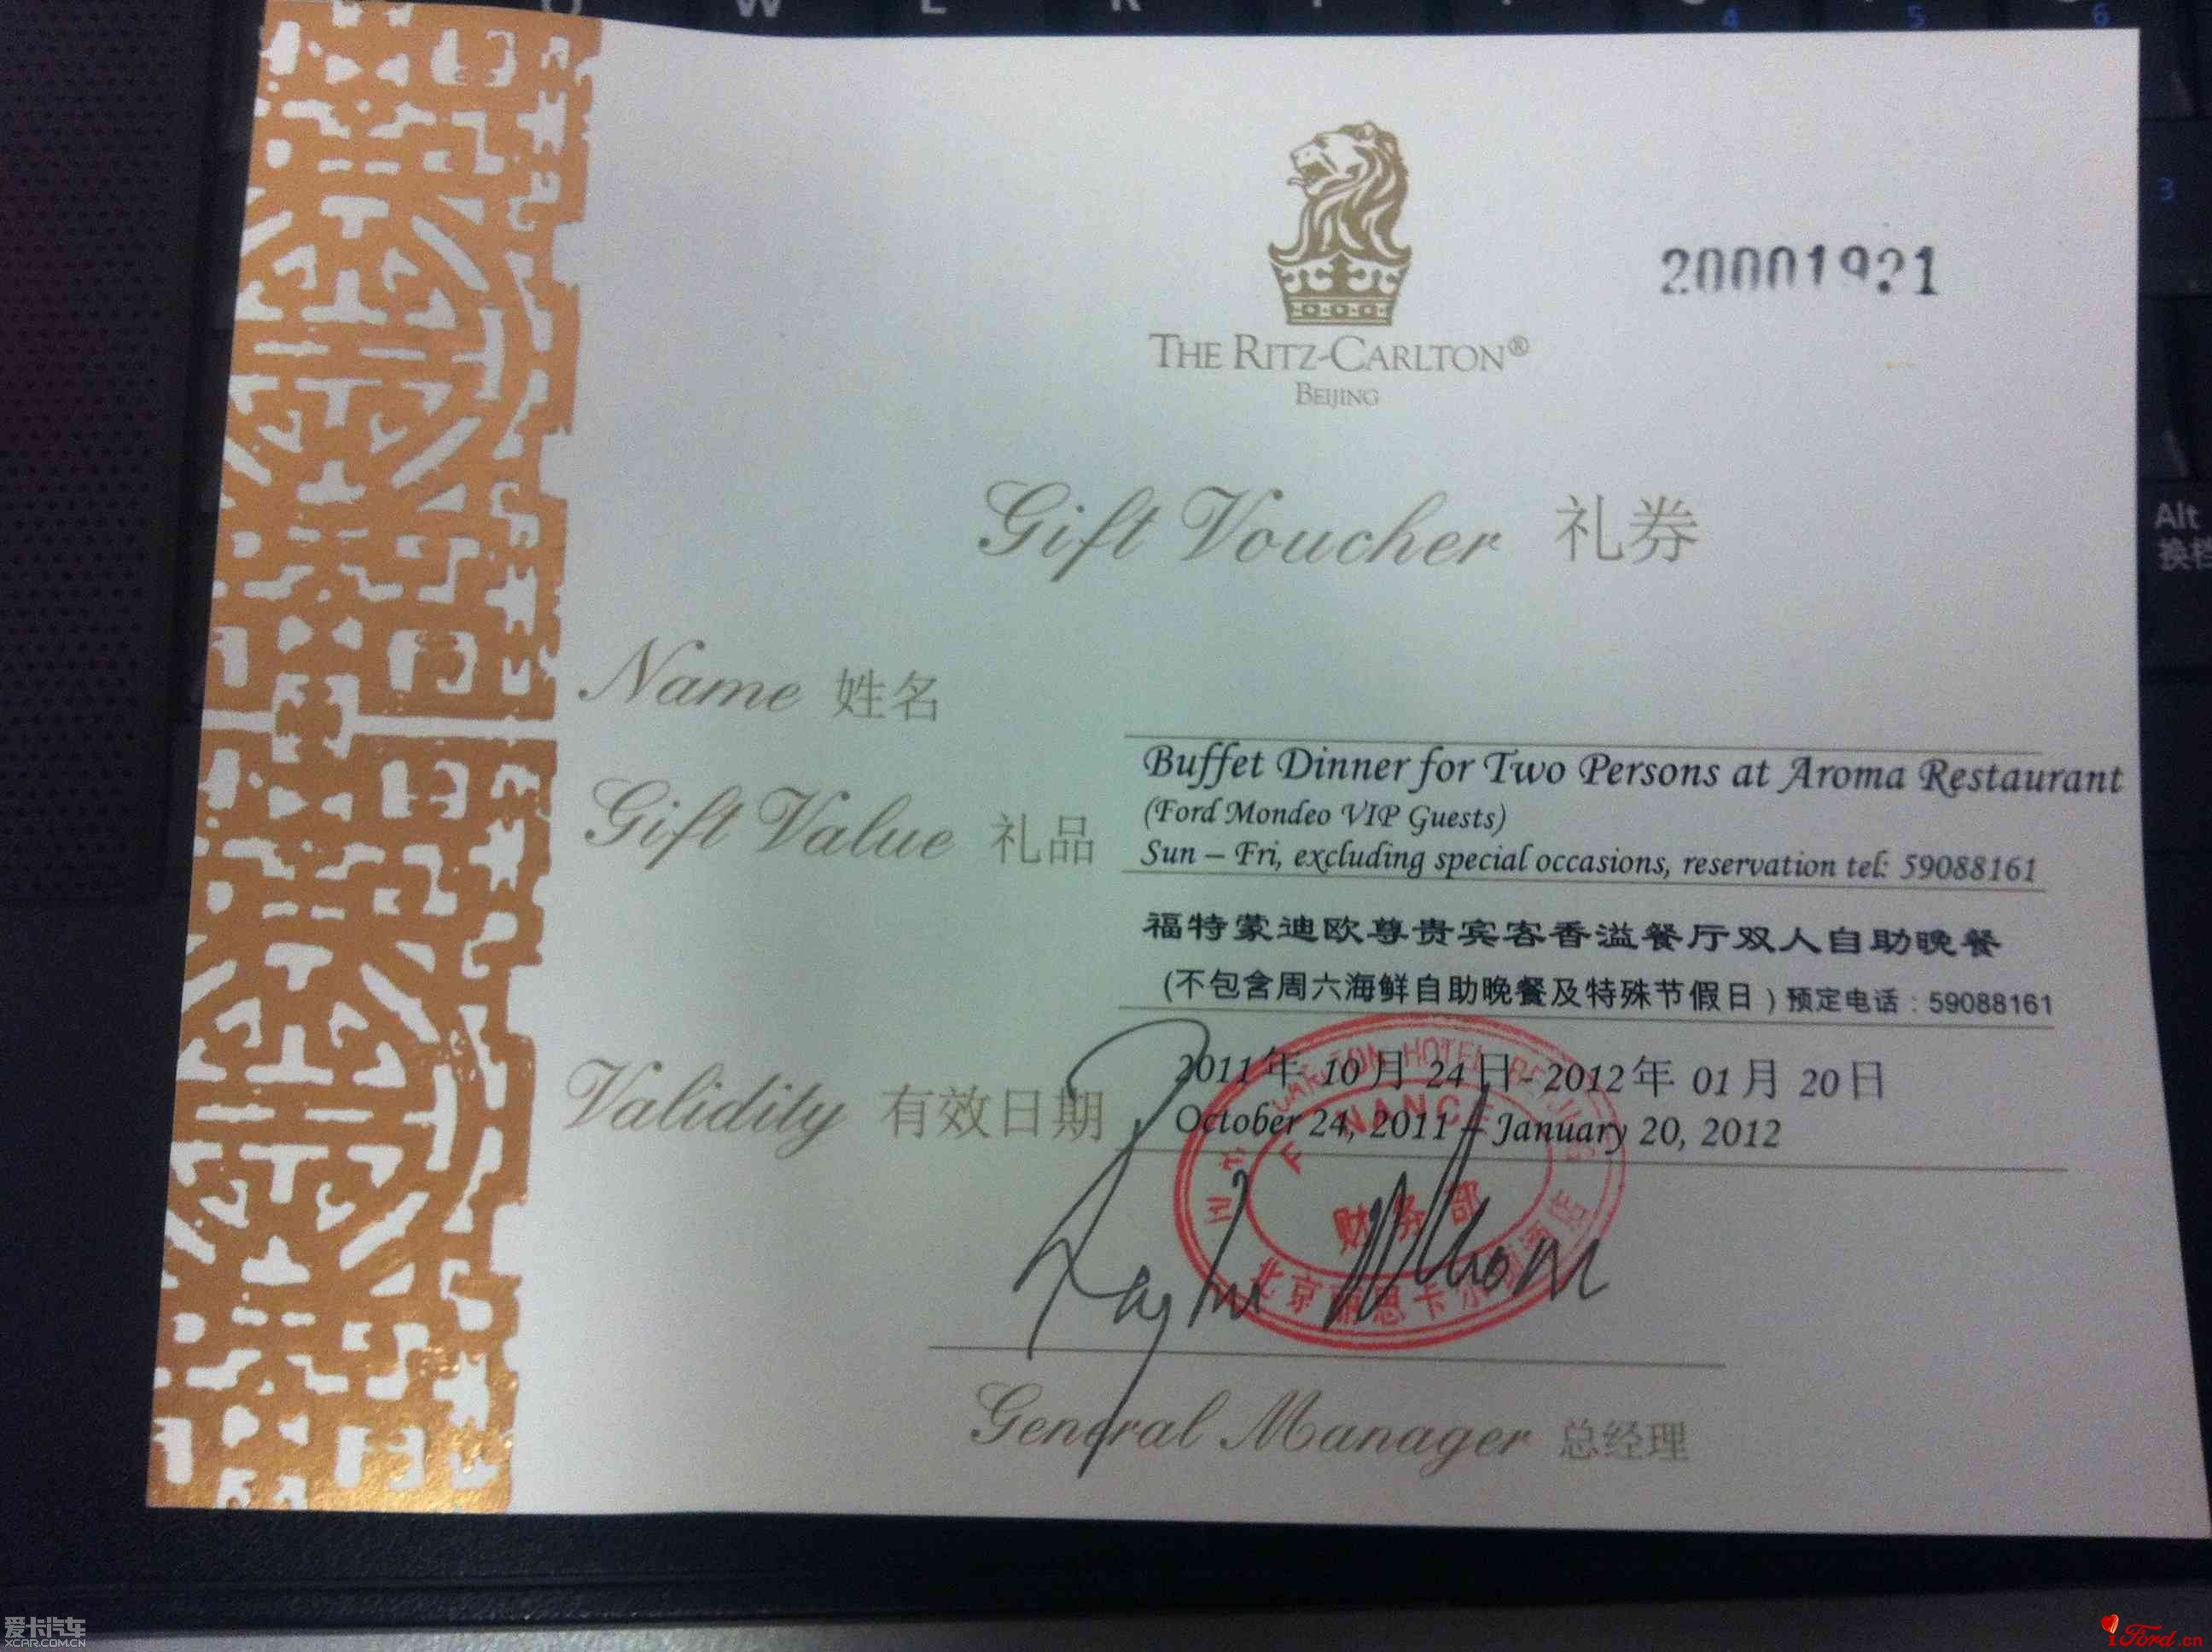 THE RITZ-CARLTON®
BEIJING
20001921
Gift Voucher 礼券
Name 姓名
Gift Value 礼品
Buffet Dinner for Two Persons at Aroma Restaurant
(Ford Mondeo VIP Guests)
Sun – Fri, excluding special occasions, reservation tel: 59088161
福特蒙迪欧尊贵宾客香溢餐厅双人自助晚餐
(不包含周六海鲜自助晚餐及特殊节假日) 预定电话：59088161
Validity 有效日期
2011年 10月 24日 - 2012年 01月 20日
October 24, 2011 – January 20, 2012
FINANCE
财务部
General Manager 总经理
Alt
换档
爱卡汽车
XCAR.COM.CN
iFord.cn